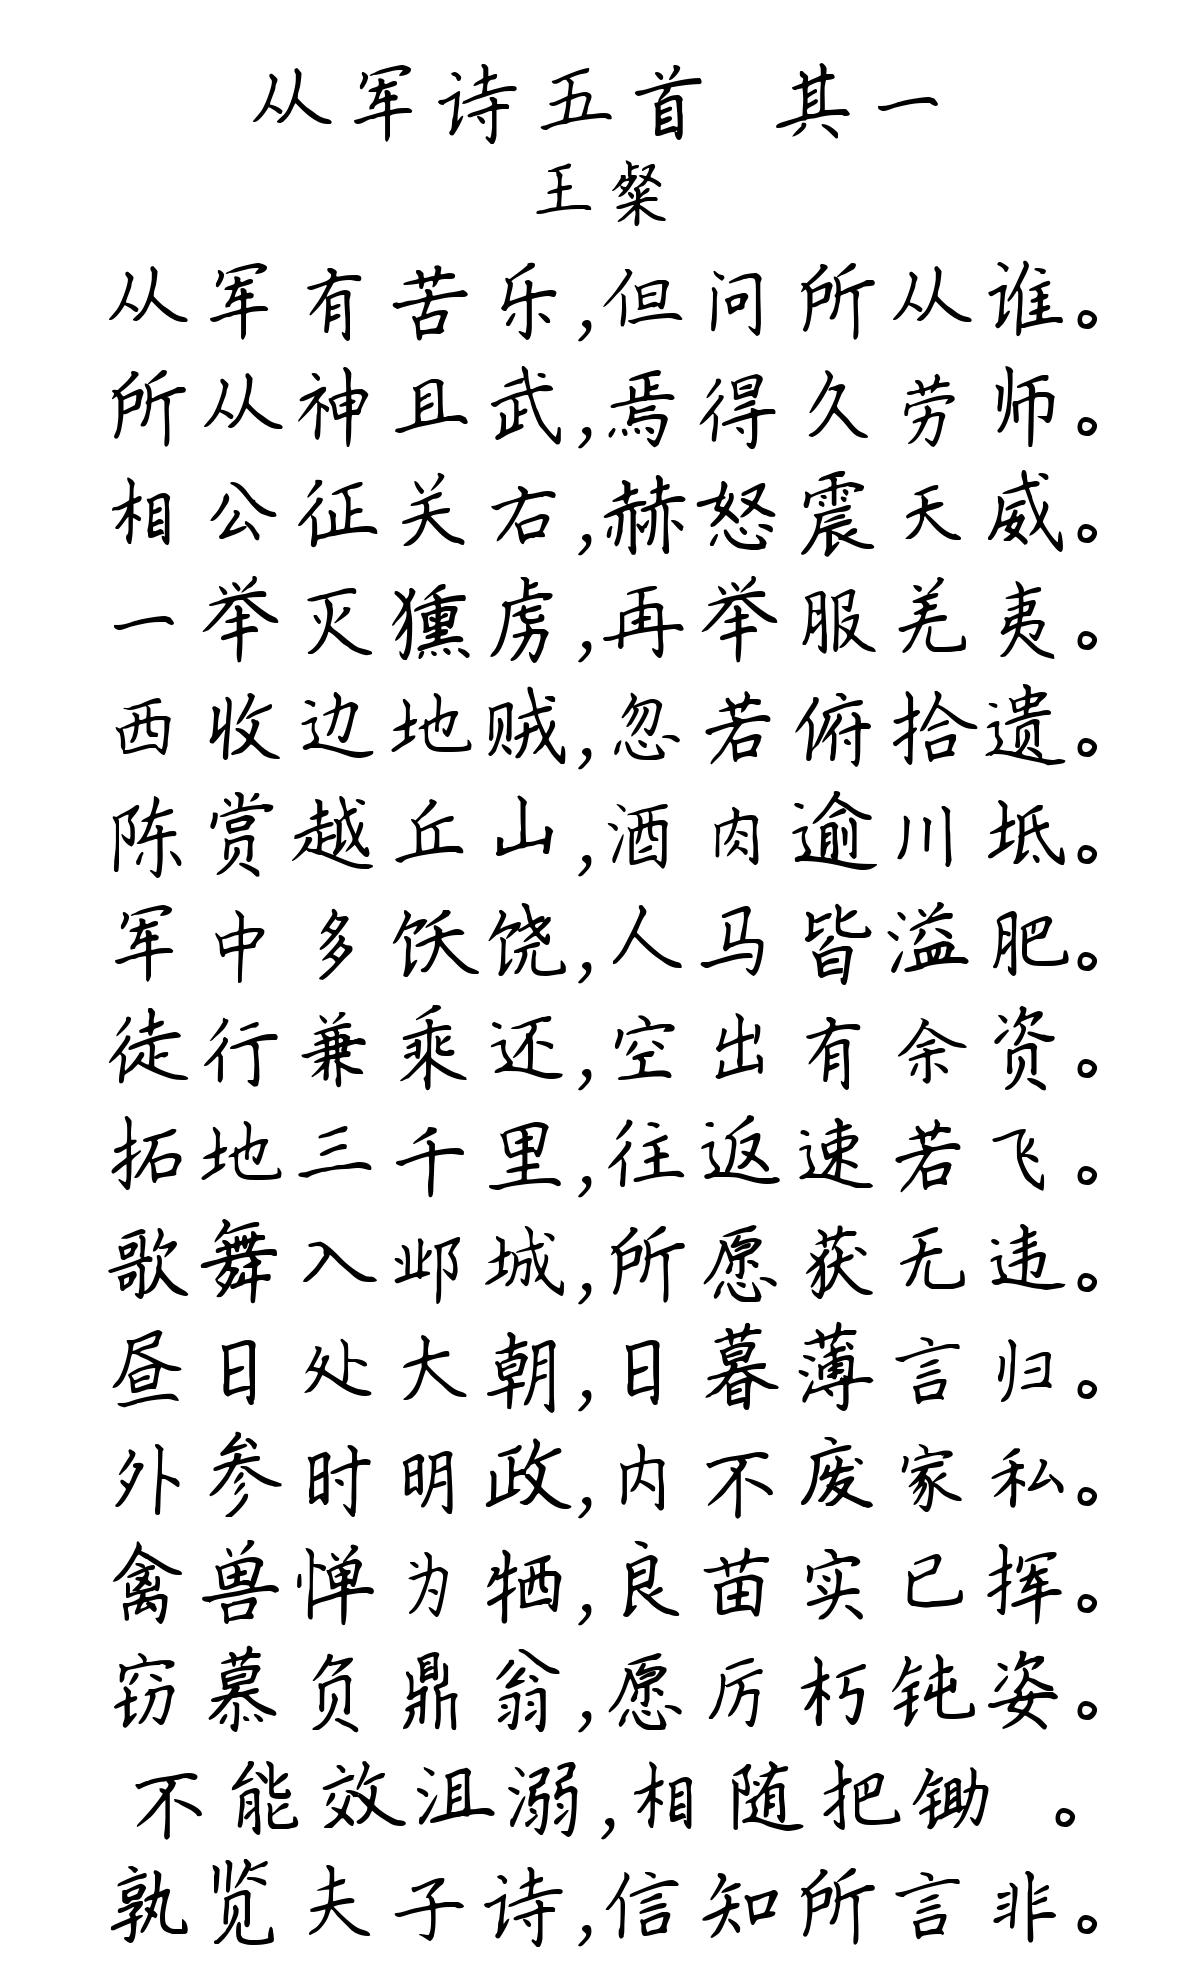 从军诗五首 其一
王粲
从军有苦乐,但问所从谁。
所从神且武,焉得久劳师。
相公征关右,赫怒震天威。
一举灭獯虏,再举服羌夷。
西收边地贼,忽若俯拾遗。
陈赏越丘山,酒肉逾川坻。
军中多饫饶,人马皆溢肥。
徒行兼乘还,空出有余资。
拓地三千里,往返速若飞。
歌舞入邺城,所愿获无违。
昼日处大朝,日暮薄言归。
外参时明政,内不废家私。
禽兽惮为牺,良苗实已挥。
窃慕负鼎翁,愿厉朽钝姿。
不能效沮溺,相随把锄 。
孰览夫子诗,信知所言非。